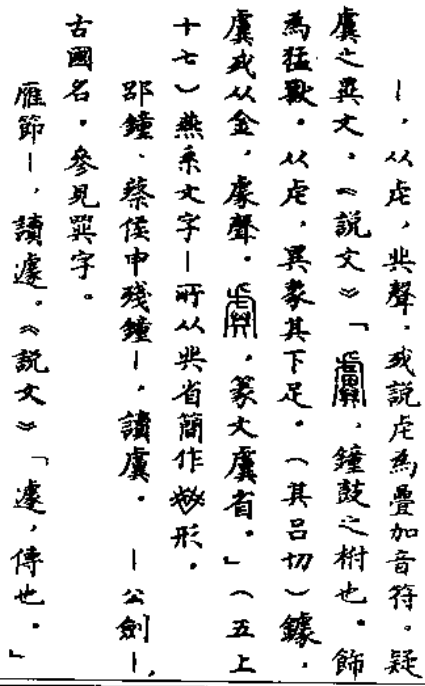 ｜，从虍，聲．或説虍為疊加音符。疑
虡之異文．《説文》「，鐘鼓之柎也。飾
為猛獸．从虍，異象其下足．（其吕切）鐻．
虡或从金，豦聲．，篆文虡省．」（五上
十七）燕系文字｜所从省簡作形．
郘鐘、蔡侯申殘鐘｜，讀虡．　｜公劍｜，
古國名．參見字。
雁節｜，讀遽。《説文》「遽，傳也．」